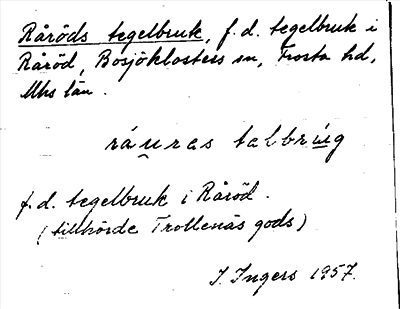 Råröds tegelbruk, f.d. tegelbruk i
Råröd, Bosjöklosters sn, Frosta hd,
Mhs län.
ráu̯ras talbrúg
f.d. tegelbruk i Råröd.
(tillhörde Trollenäs gods)
I. Ingers 1957.